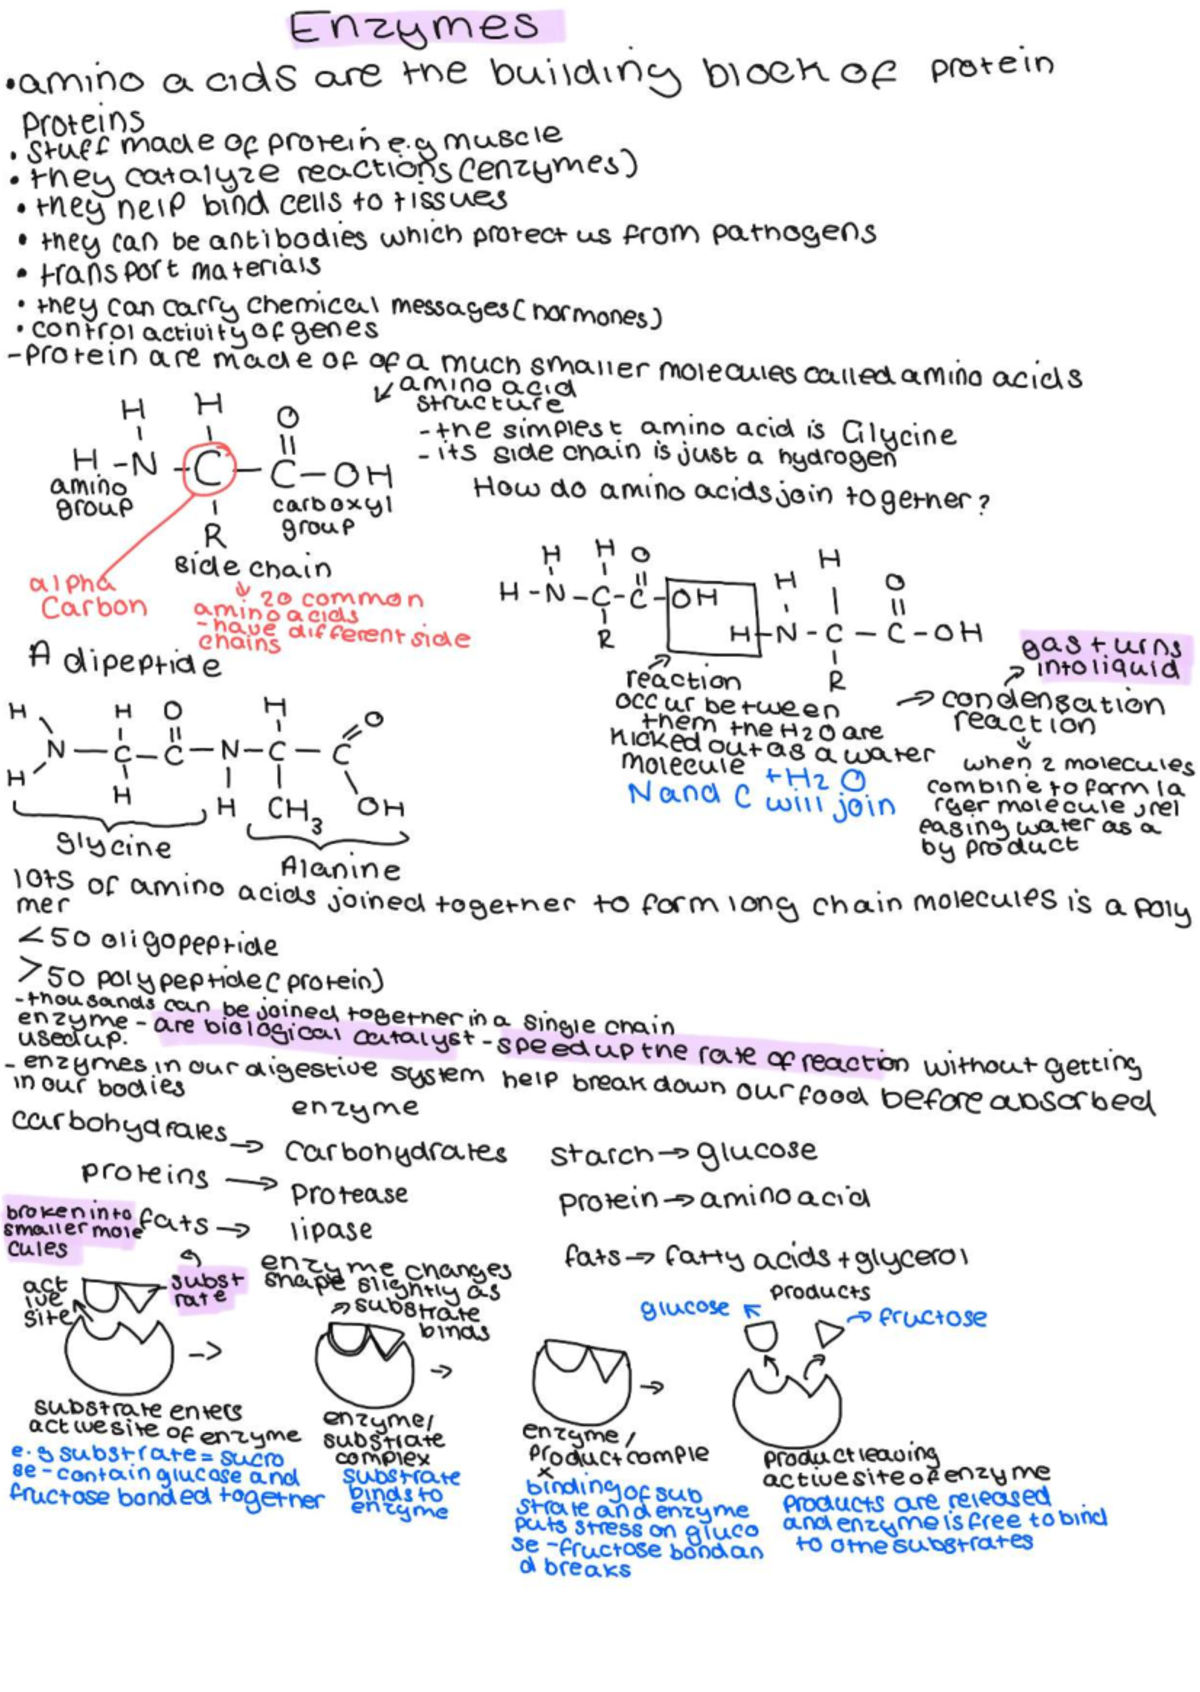 Enzymes
•amino acids are the building block of protein
Proteins
• stuff made of protein e.g muscle
• they catalyze reactions (enzymes)
• they help bind cells to tissues
• they can be antibodies which protect us from pathogens
• transport materials
• they can carry chemical messages (hormones)
• control activity of genes
-Protein are made of of a much smaller molecules called amino acids
amino acid
structure
- the simplest amino acid is Glycine
- its side chain is just a hydrogen
H H O
H - N - C - C - OH
amino
group
carboxyl
group
R
side chain
alpha
Carbon
20 common
amino acids
- have different side
chains
How do amino acids join together?
H H O
H - N - C - C - OH
R
H H O
H - N - C - C - OH
R
reaction
occur between
them the H2O are
kicked out as a water
molecule
+ H2O
N and C will join
gas turns
into liquid
condensation
reaction
when 2 molecules
combine to form la
rger molecule, rel
easing water as a
by product
A dipeptide
H H O H O
N - C - C - N - C - C
H H H CH3 OH
glycine
Alanine
lots of amino acids joined together to form long chain molecules is a poly
mer
<50 oligopeptide
>50 polypeptide (protein)
- thousands can be joined together in a single chain
enzyme - are biological catalyst - speed up the rate of reaction without getting
used up.
- enzymes in our digestive system help break down our food before absorbed
in our bodies
enzyme
carbohydrates → Carbohydrates starch → glucose
proteins → Protease protein → amino acid
fats → lipase fats → fatty acids + glycerol
broken into
smaller mole
cules
act
ive
site
subst
rate
enzyme changes
shape slightly as
substrate
binds
products
glucose
fructose
substrate enters
active site of enzyme
e.g substrate = sucro
se - contain glucose and
fructose bonded together
enzyme/
substrate
complex
substrate
binds to
enzyme
enzyme/
product comple
x
binding of sub
strate and enzyme
puts stress on gluco
se - fructose bond an
d breaks
product leaving
active site of enzyme
products are released
and enzyme is free to bind
to othe substrates